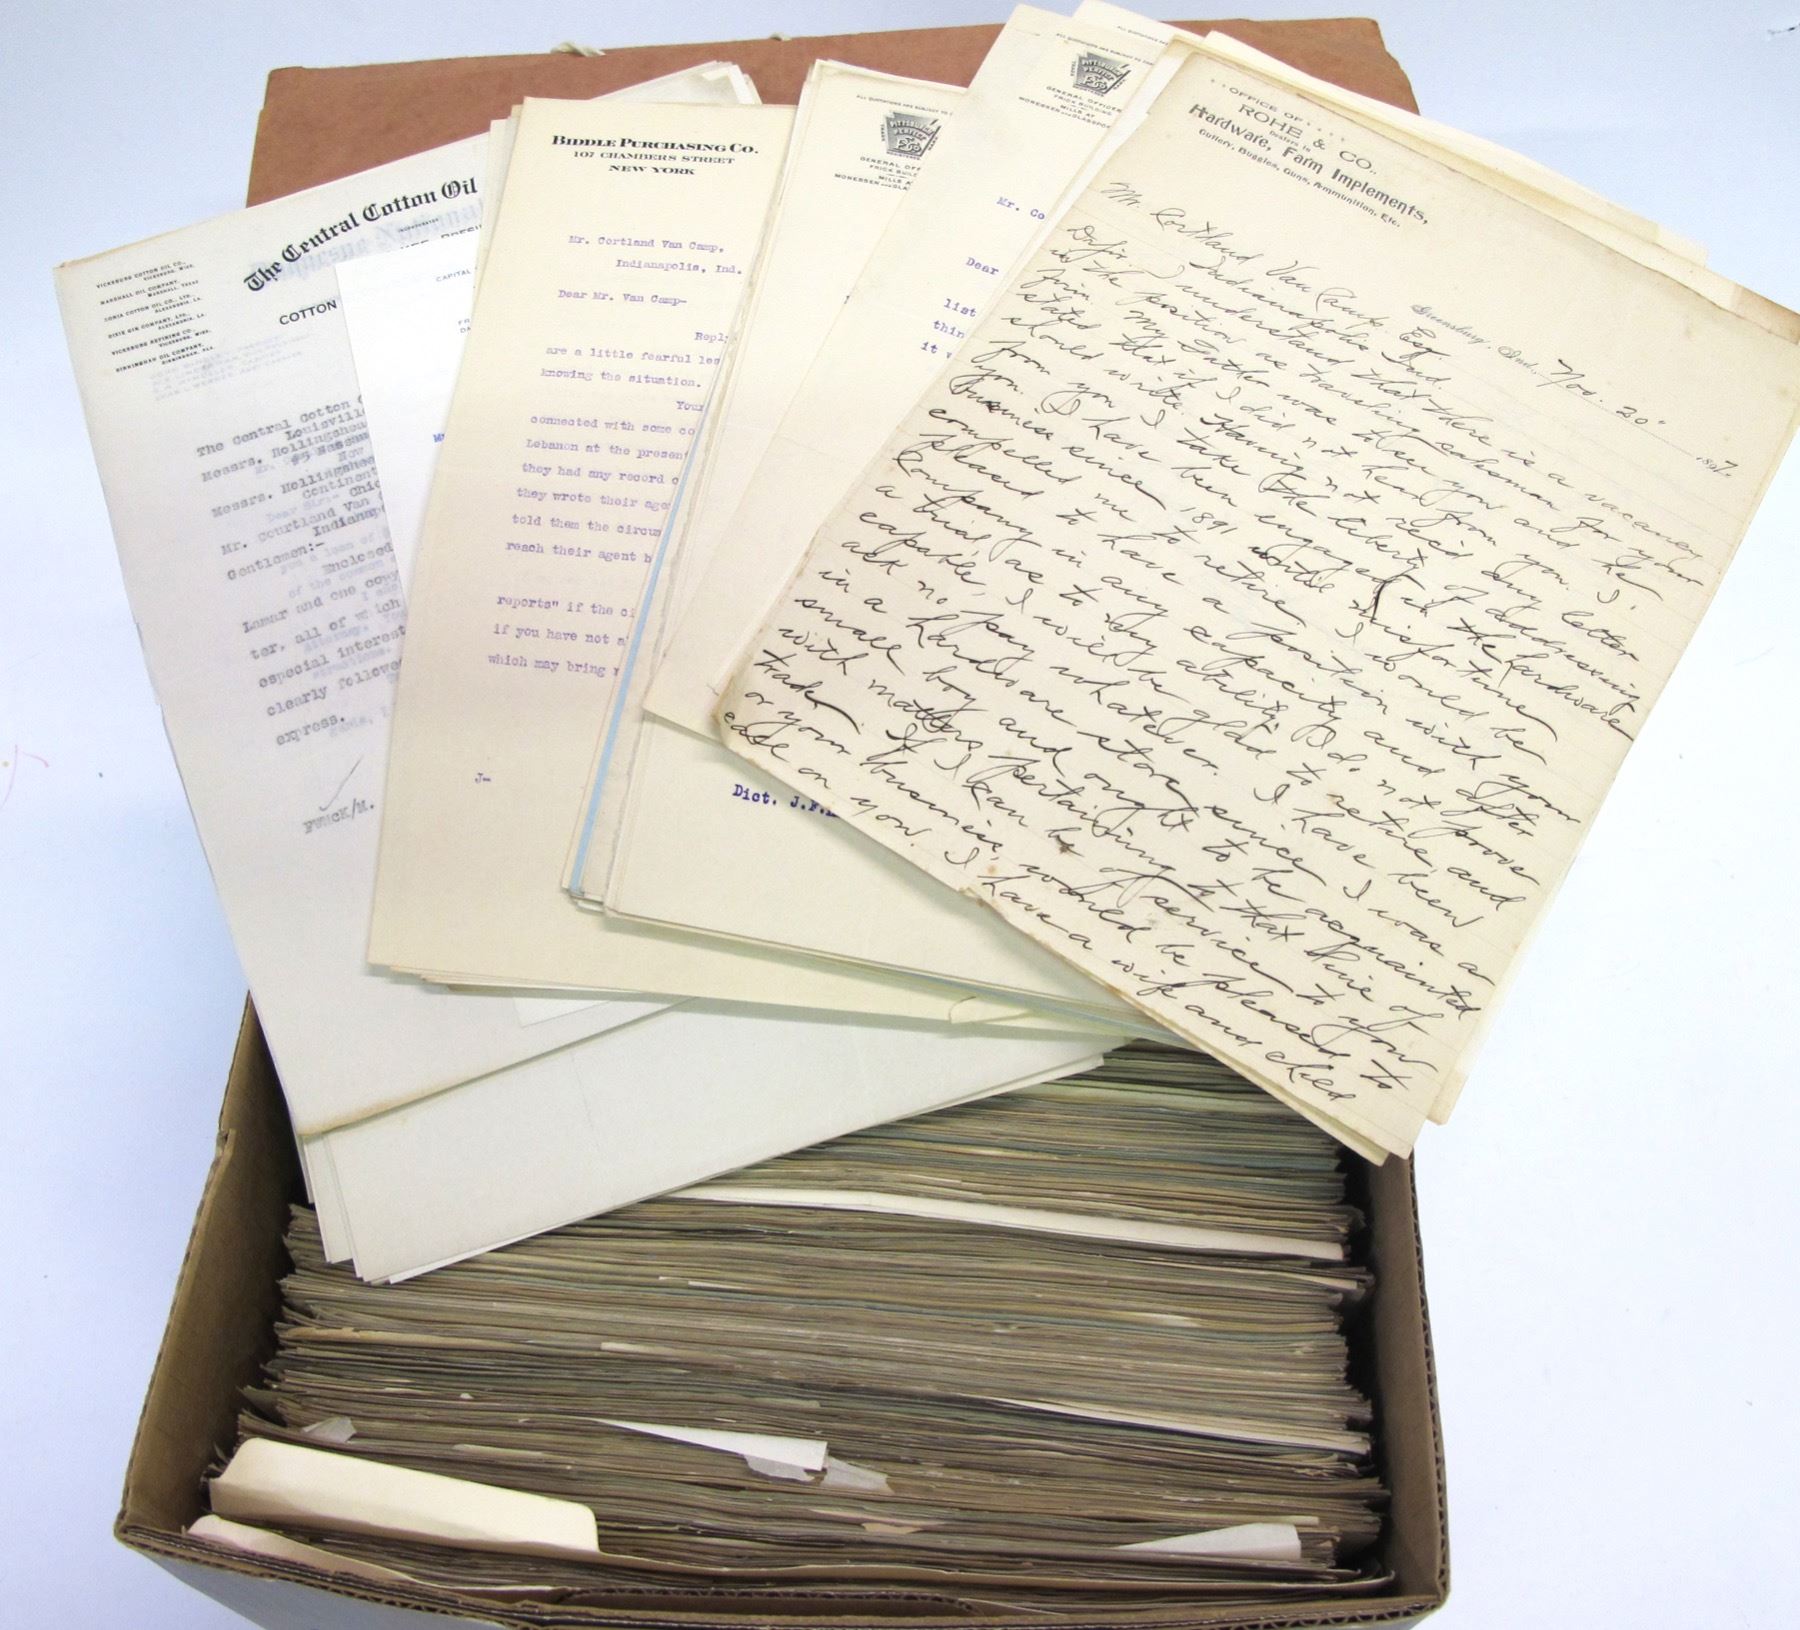 The Central Cotton Oil
INCORPORATED
VICKSBURG COTTON OIL CO.,
VICKSBURG, MISS.
MARSHALL OIL COMPANY,
MARSHALL, TEXAS
SONIA COTTON OIL CO., LTD.,
ALEXANDRIA, LA.
DIXIE GIN COMPANY, LTD.,
ALEXANDRIA, LA.
VICKSBURG REFINING CO.,
VICKSBURG, MISS.
BIRMINGHAM OIL COMPANY,
BIRMINGHAM, ALA.
COTTON
CAPITAL
The Central Cotton O
Louisville
Messrs. Hollingshea
Messrs. Hollingshea
Continent
Chic
Mr. Courtland Van C
Indianap
Gentlemen:-
Enclosed
Lamar and one copy
ter, all of which
especial interest
clearly followe
express.
FWMcK/M.
BIDDLE PURCHASING CO.
107 CHAMBERS STREET
NEW YORK
Mr. Cortland Van Camp,
Indianapolis, Ind.
Dear Mr. Van Camp-
Repl
are a little fearful les
knowing the situation.
Your
connected with some co
Lebanon at the present
they had any record o
they wrote their age
told them the circum
reach their agent b
reports" if the ci
if you have not a
which may bring
J-
ALL QUOTATIONS ARE SUBJECT TO
PITTSBURGH
PERFECT
GENERAL OFF
FRICK BUILD
MILLS A
MONESSEN AND GLA
ALL QUOTATIONS ARE SUBJECT TO
PITTSBURGH
PERFECT
GENERAL OFFICES
FRICK BUILDING
MILLS AT
MONESSEN AND GLASSPO
Mr. Co
Dear
list
thin
it w
Dict. J.F.
OFFICE OF
ROHE & CO.,
Dealers in
Hardware, Farm Implements,
Cutlery, Buggies, Guns, Ammunition, Etc.
Greensburg, Ind., Nov. 20" 1897.
Mr. Cortland Van Camp. Esq
Indianapolis Ind.
Dr Sir. I understand that there is a vacancy
in the position as traveling salesman for your
firm. My Father was to see you and he
stated that if I did not hear from you I
should write. Having not rec'd any letter
from you I take the liberty of addressing
you. I have been engaged in the hardware
business since 1891 until misfortune
compelled me to retire. I would be
pleased to have a position with your
Company in any capacity and after
a trial as to my ability, I do not prove
capable, I will be glad to retire, and
ask no pay whatever. I have been
in a hardware store since I was a
small boy and ought to be acquainted
with matters pertaining to that line of
trade. If I can be of service to you
or your business, would be pleased to
call on you. I have a wife and child